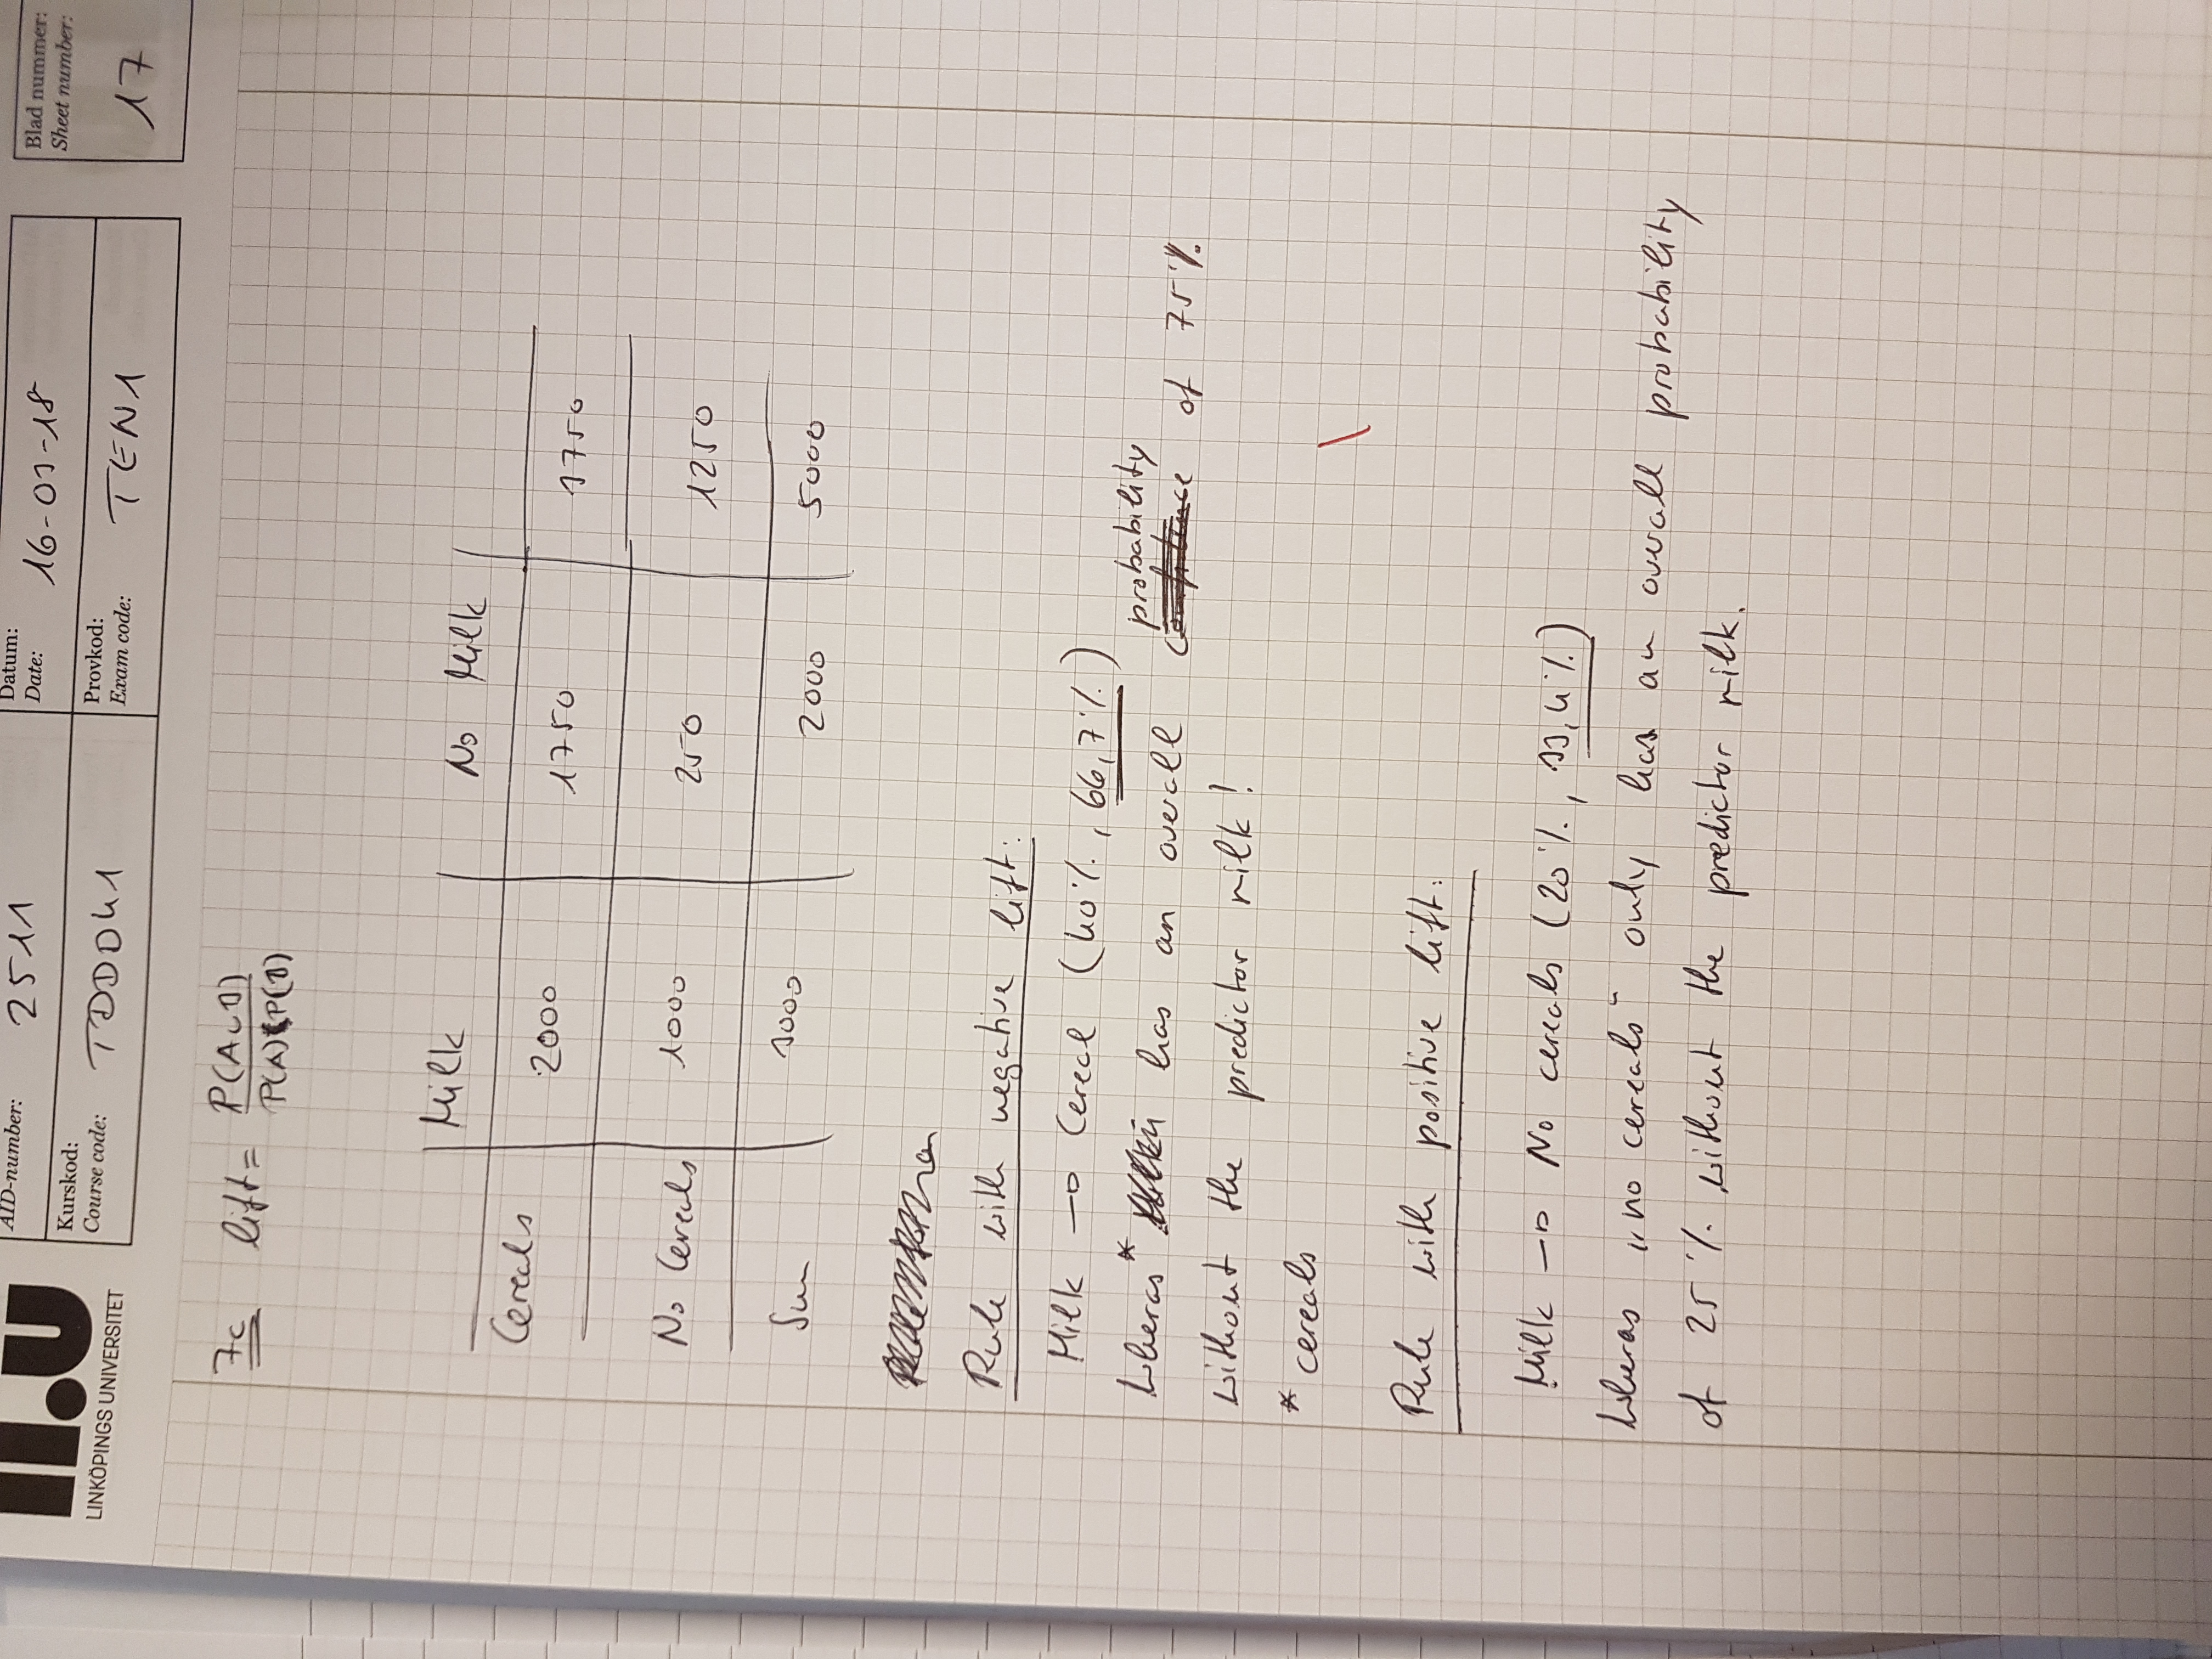 LiU
LINKÖPINGS UNIVERSITET
AID-number: 2511
Datum:
Date: 16-03-18
Blad nummer:
Sheet number:
17
Kurskod:
Course code: TDDD41
Provkod:
Exam code: TEN1
7c lift = P(A∪B)
P(A) P(B)
Milk No Milk
Cereals 2000 1750 3750
No Cereals 1000 250 1250
Sum 3000 2000 5000
Rule with negative lift:
Milk → Cereal (40%, 66,7%)
probability
Wheras* has an overall of 75%
without the predictor milk!
* cereals
Rule with positive lift:
Milk → No cereals (20%, 33,4%)
Wheras „no cereals“ only has an overall probability
of 25% without the predictor milk.